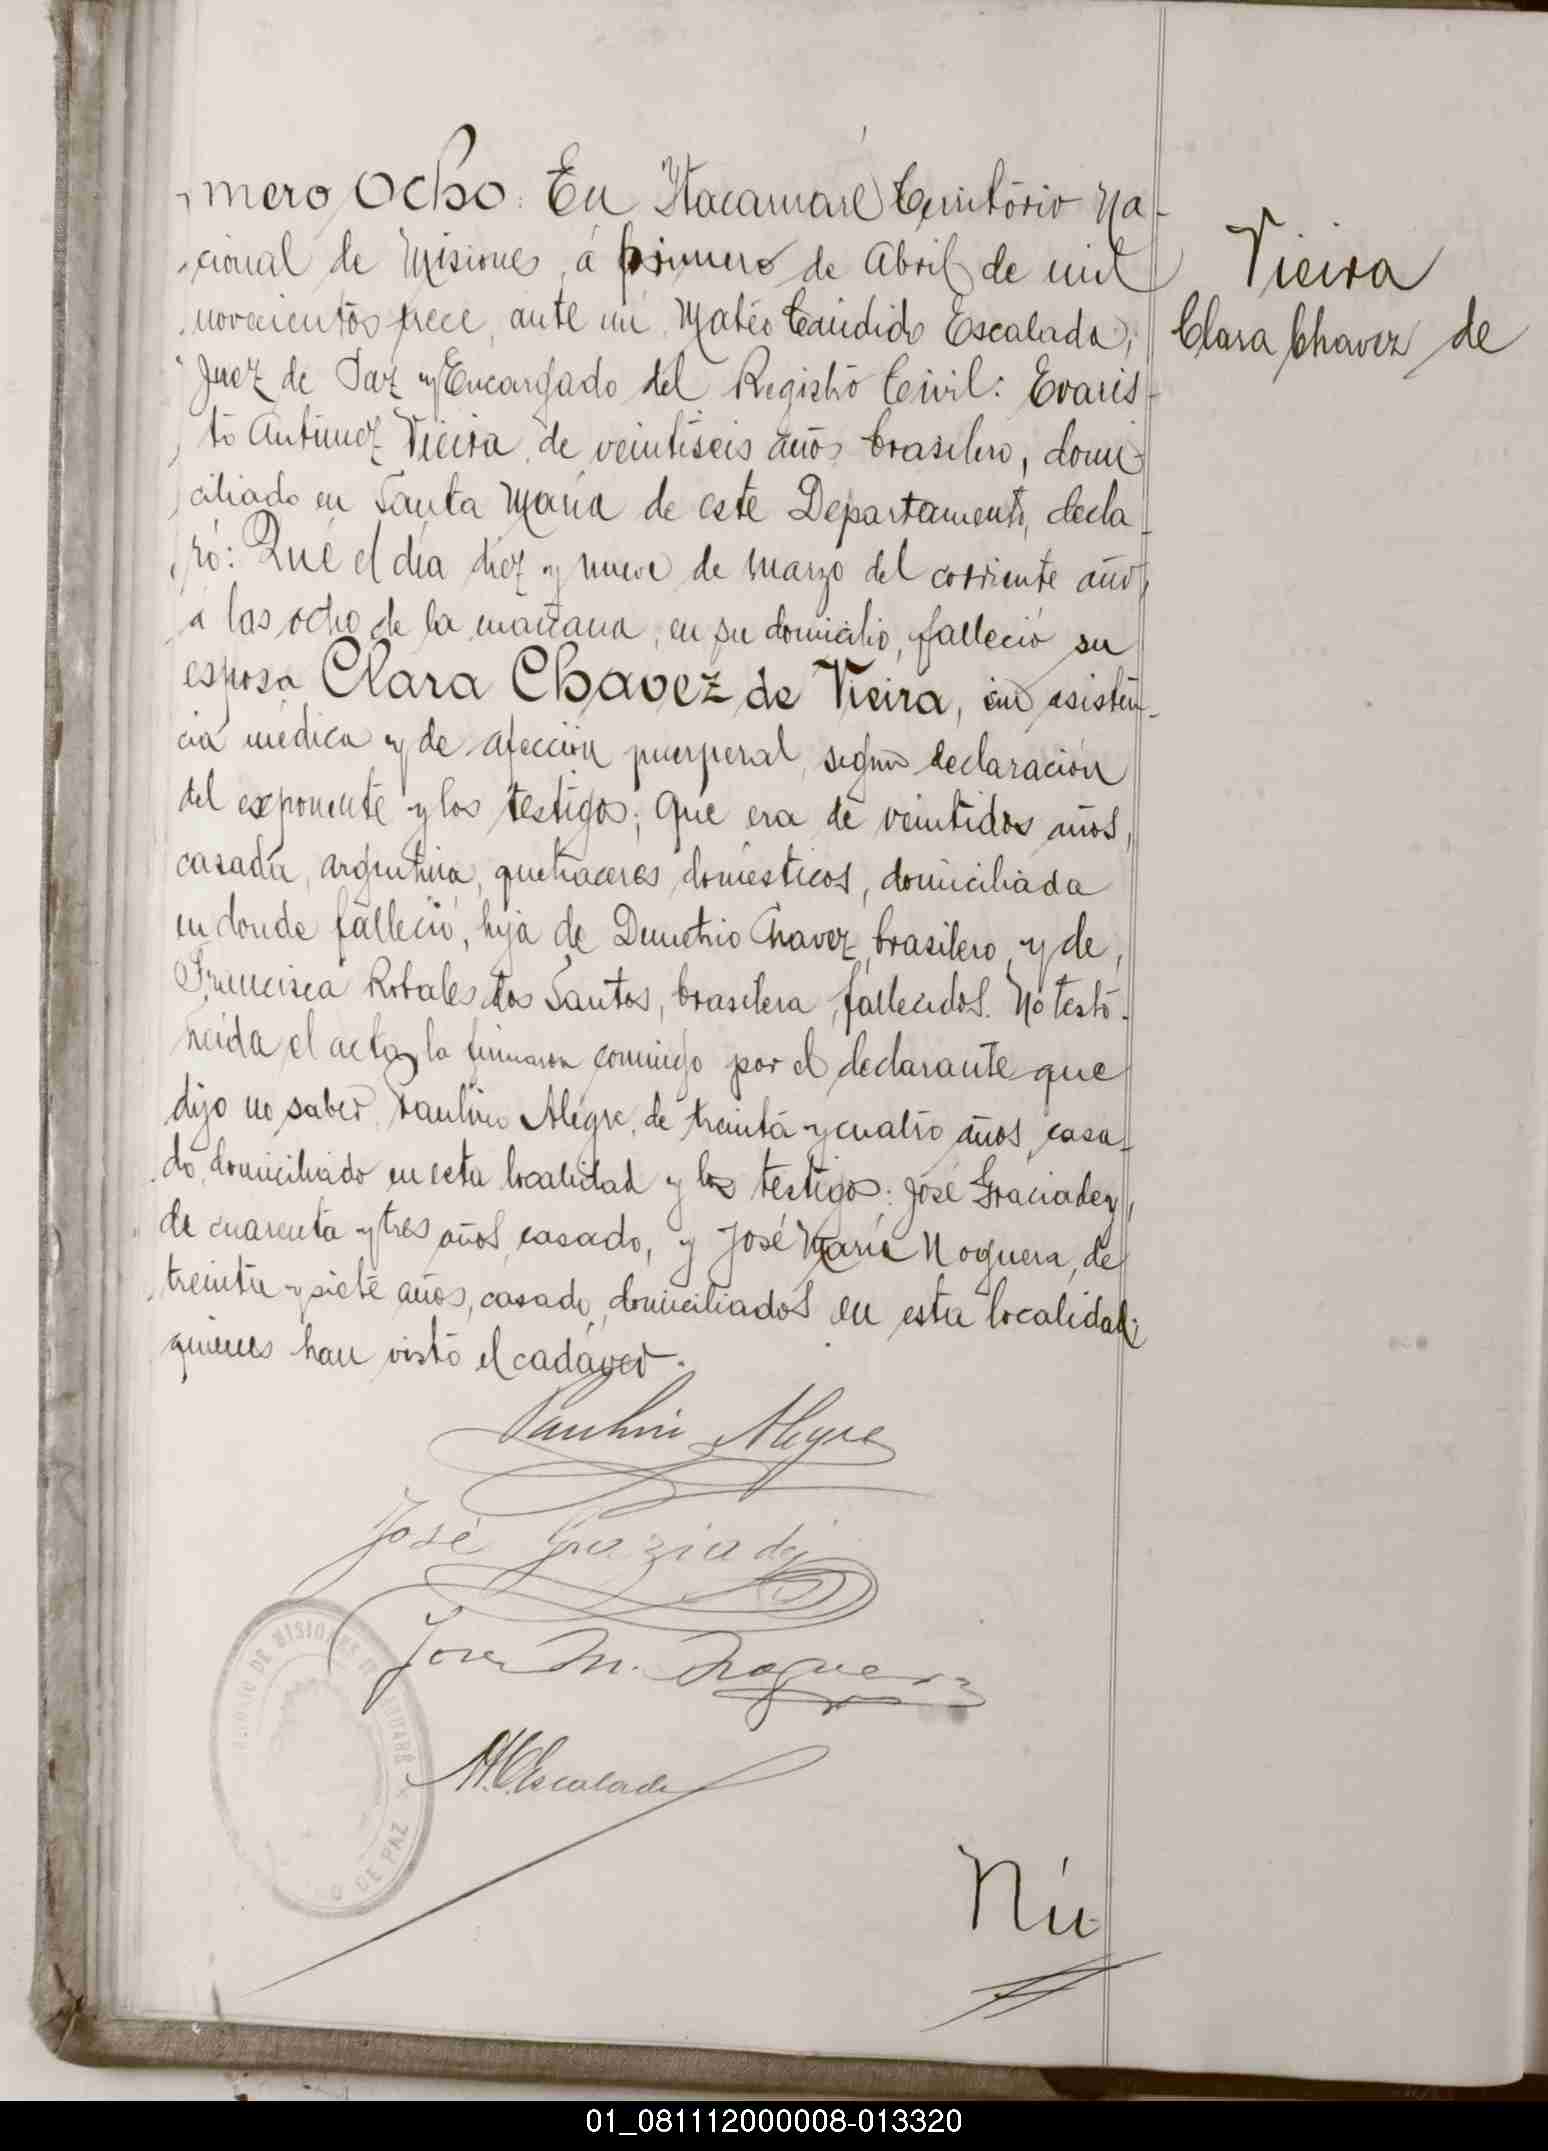 mero Ocho: En Itacaruaré Territorio Na-
cional de Misiones, á primero de Abril de mil
novecientos trece, ante mi Matéo Cándido Escalada,
Juez de Paz y Encargado del Registro Civil: Evaris-
to Antunez Vieira, de veintiseis años brasilero, domi-
ciliado en Santa María de este Departamento, decla-
ró: Qué el día diez y nueve de marzo del corriente año
á las ocho de la mañana, en su domicilio, falleció su
esposa Clara Chavez de Vieira, sin asisten-
cia médica y de afección puerperal, según declaración
del exponente y los testigos; Que era de veintidos años,
casada, argentina, quehaceres domésticos, domiciliada
en donde falleció, hija de Demetrio Chavez, brasilero, y de,
Francisca Robales dos Santos, brasilera, fallecidos. No testó.
Leida el acta, la firmaron conmigo por el declarante que
dijo no saber, Paulino Alegre, de treinta y cuatro años, casa-
do, domiciliado en esta localidad y los testigos: José Graciadey,
de cuarenta y tres años, casado, y José María Noguera, de
treinta y siete años, casado, domiciliados en esta localidad;
quienes han visto el cadáver.
Vieira
Clara Chavez de
Paulino Alegre
José Graziadej
Jose M. Noguera
M. C. Escalada
DE MISIONES
DE PAZ
Nú-
01_081112000008-013320